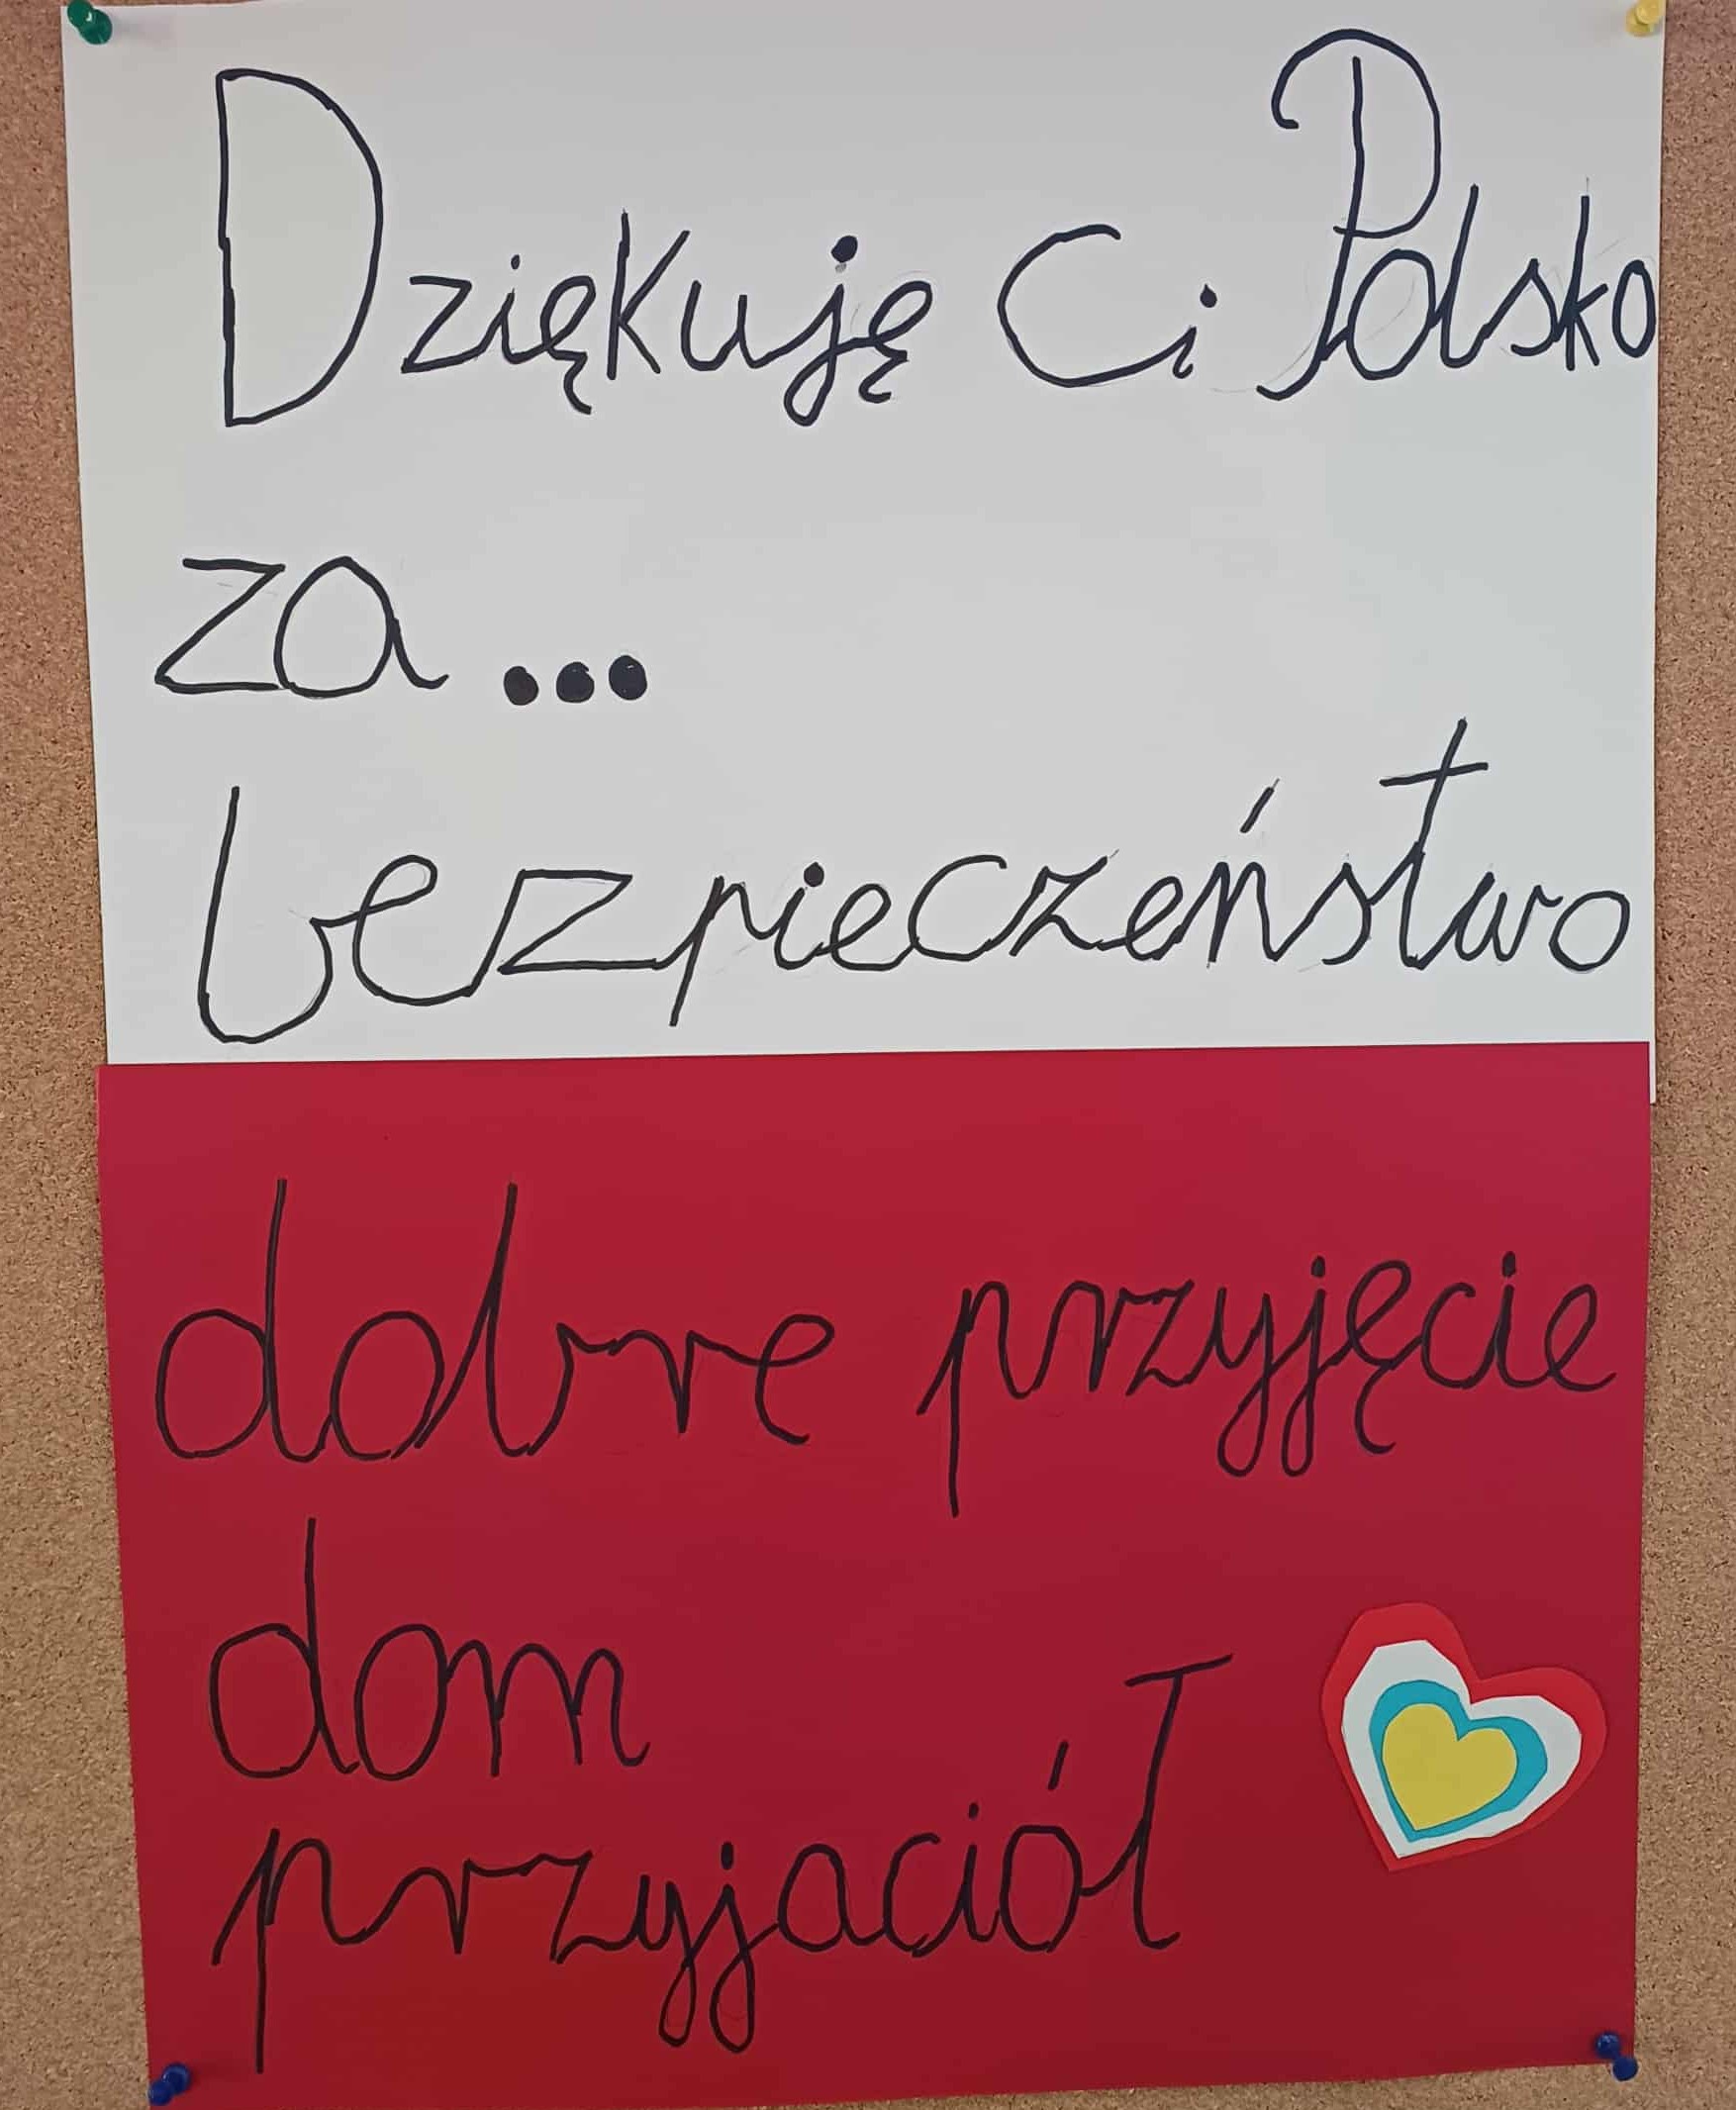 Dziękuję Ci Polsko
za...
bezpieczeństwo
dobre przyjęcie
dom
przyjaciół